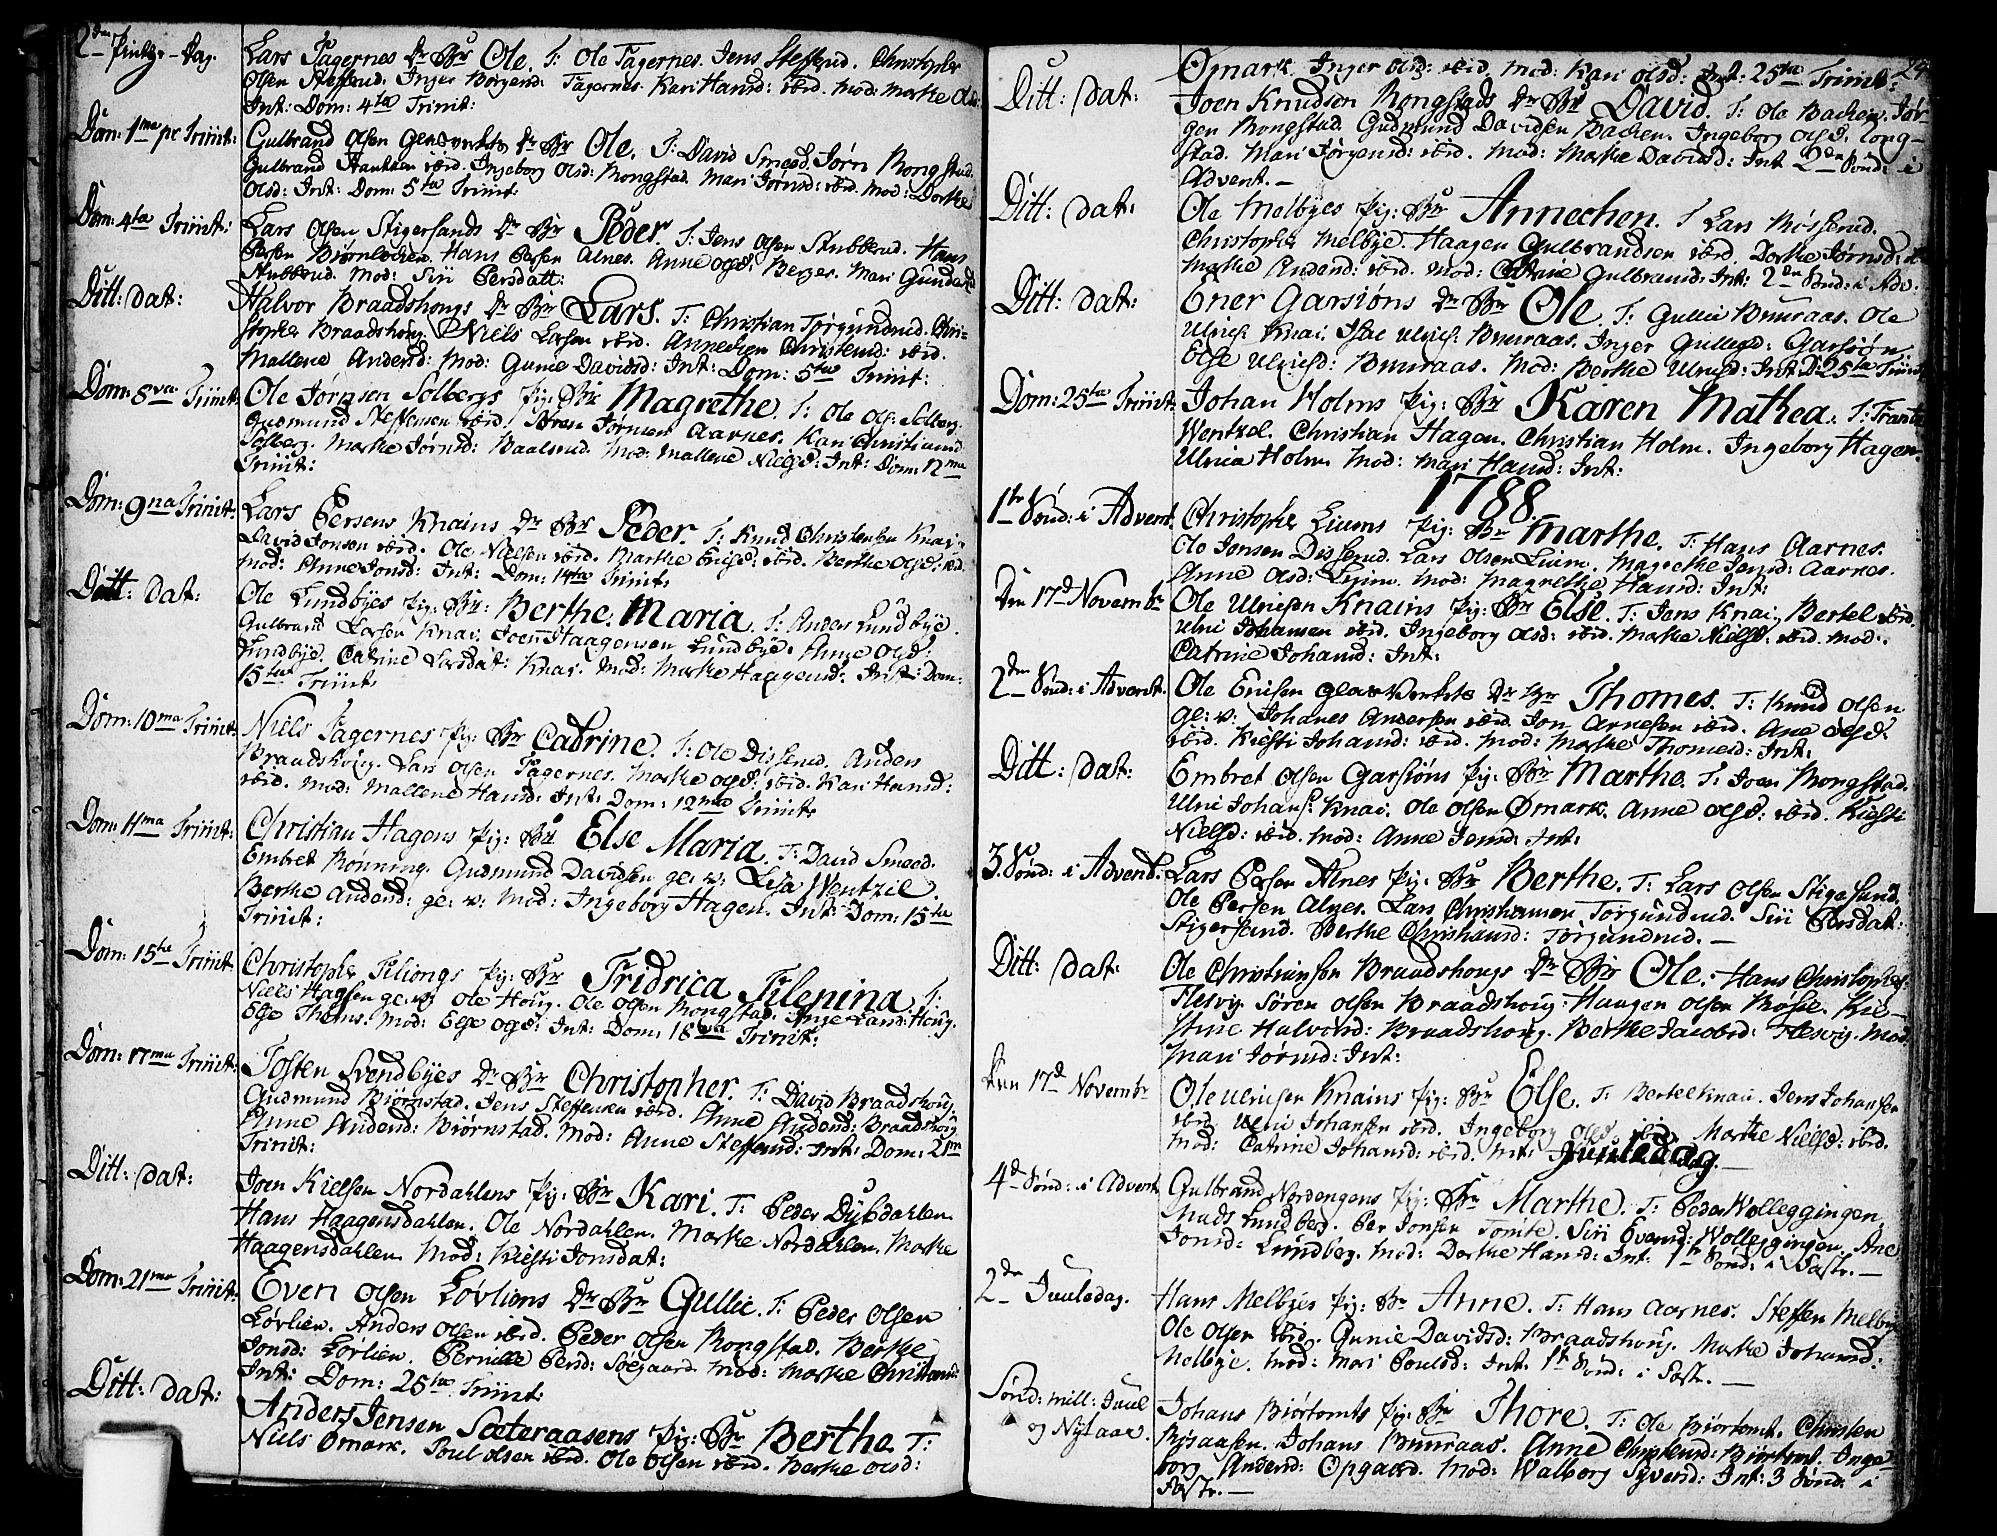 2den Pintze-Dag. Lars Tagernes Dr. Br Ole. T: Ole Tagernes. Jens Steffend. Christopher
Olsen Steffend. Inger Børgend: Tagernes. Kari Hansd: ibid. Mod: Marthe Olsd:
Int: Dom: 4ta Trinit:
Dom: 1ma pr Trinit: Gulbrand Olsen Glasverket Dr Br Ole. T: David Smeed. Jørn Rongstad.
Gulbrand ibid. Ingeborg Olsd: Rongstad. Mari Jørnsd: ibid. Mod: Dorthe
Olsd: Int: Dom: 5ta Trinit
Dom: 4ta Trinit: Lars Olsen Stigersands Dr Br Peder. T: Jens Olsen Stubberud. Hans
Persen Biørnlochen. Hans Persen Alnes. Anne Olsd: Berger. Mari Gundersd
Stubberud. Mod: Siri Persdatt:
Ditt: dat: Halvor Braadshougs Dr Br Lars. T: Christian Torgunrud. Chri-
stopher Braadshoug. Niels Larsen ibid. Annechen Christensd: ibid.
Mallene Andersd: Mod: Gunie Davidsd: Int: Dom: 5ta Trinit:
Dom: 8va Trinit: Ole Jørnsen Solbergs Pig: Br Magrethe. T: Ole Ols: Solberg.
Gudmund Steffensen ibid. Jørnsen Aarnes. Kari Christiansd
Solberg. Marthe Jørnsd: Baalsrud. Mod: Mallene Nielsd: Int: Dom: 12ma
Trinit:
Dom: 9na Trinit: Lars Persens Knains Dr Br Peder. T: Knud Christensen Knai.
David Jonsen ibid. Ole Nielsen ibid. Marthe Erichsd: ibid. Berthe Olsd: ibid:
Mod: Anne Jonsd: Int: Dom: 14ta Trinit:
Ditt: dat: Ole Lundbyes Pig: Br: Berthe Maria. T: Anders Lundbye.
Gulbrand Larsen Knai. Joen Haagensen Lundbye. Anne Olsd:
Lundbye. Catrine Larsdat: Knai. Mod: Marthe Haagensd: Int: Dom:
15ta Trinit:
Dom: 10ma Trinit: Niels Tagernes Pig: Br Catrine. T: Ole Disserud. Anders
Braadshoug. Lars Olsen Tagernes. Marthe Olsd: ibid. Kari Hansd:
ibid. Mod: Mallene Hansd: Int: Dom: 12ma Trinit:
Dom: 11ma Trinit: Christian Hagens Pig: Br Else Maria. T: David Smeed.
Embret Rønning. Gudmund Davidsen gl: v: Lisa Wentzel.
Berthe Andersd: gl: v: Mod: Ingeborg Hagen. Int: Dom: 15ta
Trinit:
Dom: 15ta Trinit: Christopher Filiongs Pig: Br Fridrica Filenina. T:
Niels Hagsen gl: v: Ole Houg. Ole Olsen Rongstad. Inge Land: Houg.
Else Thoms: Mod: Else Olsd: Int: Dom: 18va Trinit:
Dom: 17ma Trinit: Tosten Svendbyes Dr Br Christopher. T: David Braadshoug.
Gudmund Biørnstad. Jens Steffensen ibid. Anne Andersd: Braadshoug
Anne Andersd: Biørnstad. Mod: Anne Steffensd: Int: Dom: 21ma
Trinit:
Ditt: dat: Joen Kielsen Nordahlens Pig: Br Kari. T: Peder Dybdahlen.
Hans Haagensdahlen. Ole Nordahlen. Marthe Nordahlen. Marthe
Haagensdahlen. Mod: Kiersti Jonsdat:
Dom: 21ma Trinit: Even Olsen Løvliens Dr Br Gullic. T: Peder Olsen
Løvlien. Anders Olsen ibid. Peder Olsen Rongstad. Berthe
Jonsd: Løvlien. Pernille Persd: Soegaard. Mod: Marthe Christiansd:
Int: Dom: 25ta Trinit:
Ditt: dat: Anders Jensen Sæteraasens Pig: Br Berthe. T:
Niels Ømark. Poul Olsen ibid. Ole Olsen ibid. Berthe Olsd:
Ømark. Inger Olsd: ibid. Mod: Kari Olsd: Int: 25ta Trinit:
Ditt: dat: Joen Knudsen Rongstads Dr Br David. T: Ole Bachen. Jør-
gen Rongstad. Gudmund Davidsen Bachen. Ingeborg Olsd: Rong-
stad. Mari Jørgensd: ibid. Mod: Marthe Davidsd: Int 2den Sønd: i
Advent.
Ditt: dat: Ole Melbyes Pig: Br Annechen. T Lars Møsserud.
Christopher Melbye. Haagen Gulbrandsen ibid. Dorthe Jørnsd:
Marthe Andersd: ibid. Mod: Catrine Gulbransd: Int: 2den Sønd: i Adv.
Ditt: dat: Ener Garsiøns Dr Br Ole T: Gullic Buuraas. Ole
Ulrichs: Knai. Isac Ulrichs: Buuraas. Inger Gullichsd: Garsiøn
Else Ulrichsd: Buuraas. Mod: Berthe Ulrichsd: Int: D: 25ta Trinit
Dom: 25ta Trinit: Johan Holms Pig: Br Karen Mathea. T: Frantz
Wentzel. Christian Hagen. Christian Holm. Ingeborg Hagen.
Ulrica Holm. Mod: Mari Hansd: Int:
1788.
1te Sønd: i Advent Christopher Liums Pig: Br Marthe. T: Hans Aarnes.
Ole Jonsen Disserud. Lars Olsen Lium. Magrethe Jensd: Aarnes.
Anne Olsd: Lium. Mod: Magrethe Hansd: Int:
Den 17d Novembr Ole Ulrichsen Knains Pig: Br Else. T: Jens Knai, Bertel ibid.
Ulric Johansen ibid. Ingeborg Olsd: ibid. Marthe Nielsd: ibid. Mod:
Catrine Johansd: Int:
2den Sønd: i Advent. Ole Erichsen Glasverkets Dr Br Thomes. T: Knud Olsen
gl: v: Johanes Andersen ibid. Jon Arnesen ibid. Ane Olsd.
ibid. Kiersti Johansd: ibid. Mod: Marthe Thomesd: Int:
Ditt: dat: Embret Olsen Garsiøns Pig: Br Marthe. T: Joen Rongstad.
Ulric Johans: Knai. Ole Olsen Ømark. Anne Olsd: ibid. Kiersti
Nielsd: ibid. Mod: Anne Jensd: Int:
3 Sønd: i Advend: Lars Persen Alnes Pig: Br Berthe. T: Lars Olsen Stigersand.
Ole Persen Alnes. Lars Christiansen Torgundrud. Siri Persdat:
Stigersand. Berthe Christiansd: Torgundrud.
Ditt: dat: Ole Christiansen Braadshougs Dr Br Ole. Hans Christophers:
Flesvig. Søren Olsen Braadshoug. Haagen Olsen Røste. Kie-
stine Halvorsd: Braadshoug. Berthe Jacobsd: Flesvig. Mod
Mari Jørnsd: Int:
Den 17d Novembr Ole Ulrichsen Knains Pig: Br Else. T: Bertel Knai. Jens Johansen
ibid. Ulric Johansen ibid. Ingeborg Olsd ibid. Marthe Nielsd: ibid.
Mod: Catrine Johansd: ibid. Int: Juuledag.
4d Sønd: i Advent Gulbrand Nordengens Pig: Br Marthe. T: Peder Wolleggingen.
Mads Lundberg. Per Jonsen Tomte. Siri Evensd: Wolleggingen. Ane
Jonsd: Lundberg. Mod: Dorthe Hansd: Int: 1te Sønd: i Faste.
2dn Juuledag. Hans Melbyes Pig: Br Anne. T: Hans Aarnes. Steffen Melbye
Ole Olsen ibid. Gunie Davidsd: Braadshoug. Marthe Johansd:
Melbye. Mod: Mari Poulsd: Int. 1te Sønd: i Faste.
Sønd: mell: Juul og Nytaar. Johans Biørtomts Pig: Br Thore. T: Ole Biørtomt. Christen
Røsaasen. Johans Buuraas. Anne Christensd: Biørtomt. Inge-
borg Andersd: Opgaard. Mod: Walborg Syversd: Int: 3 Sønd: i
Faste.